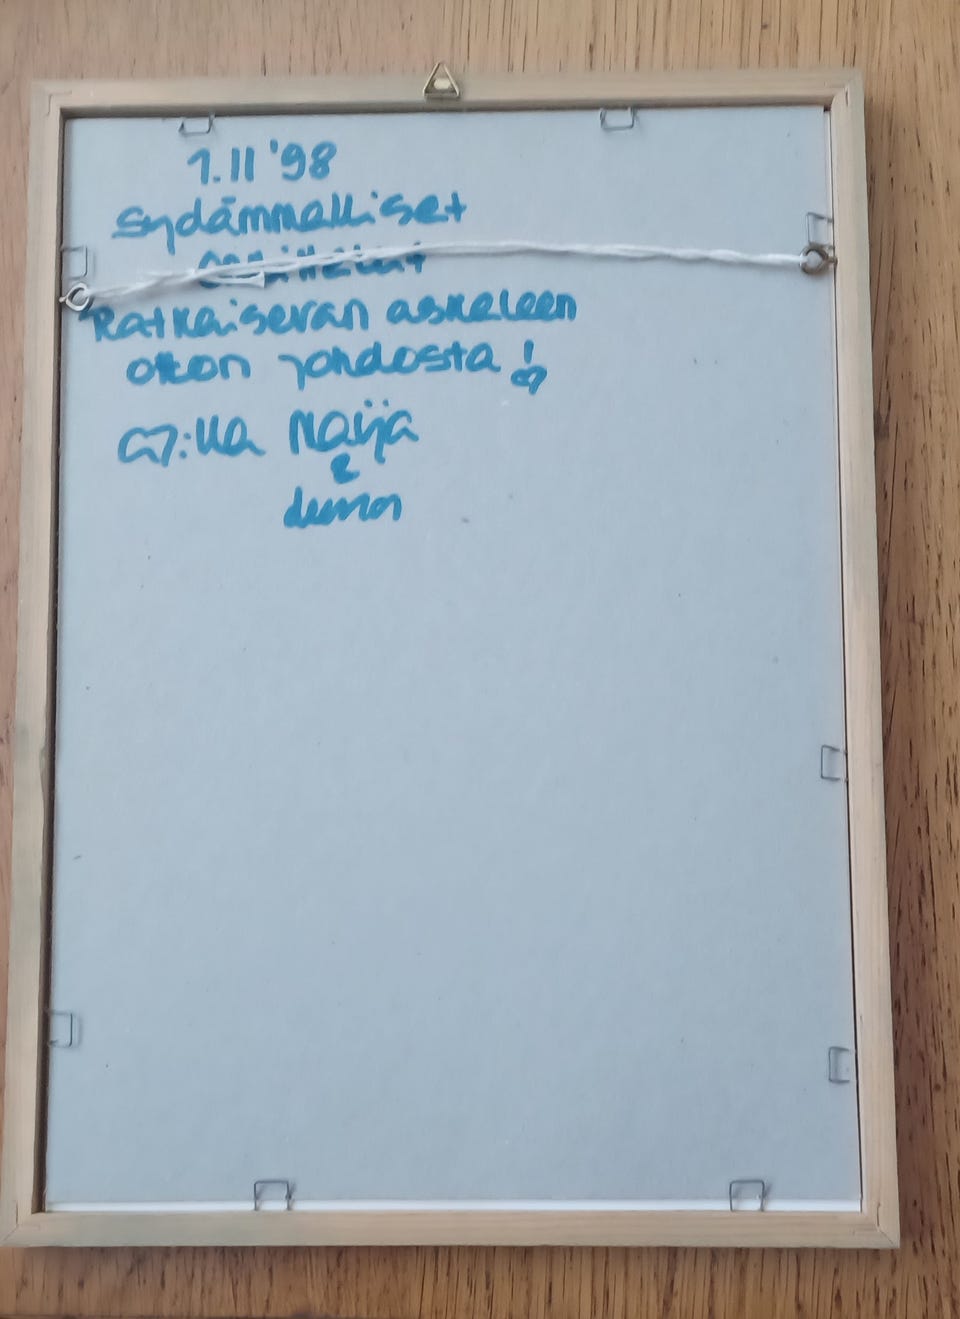 1.11 '98
sydämmelliset
onnittelut
Ratkaisevan askeleen
oton johdosta!
:lla Maija
&